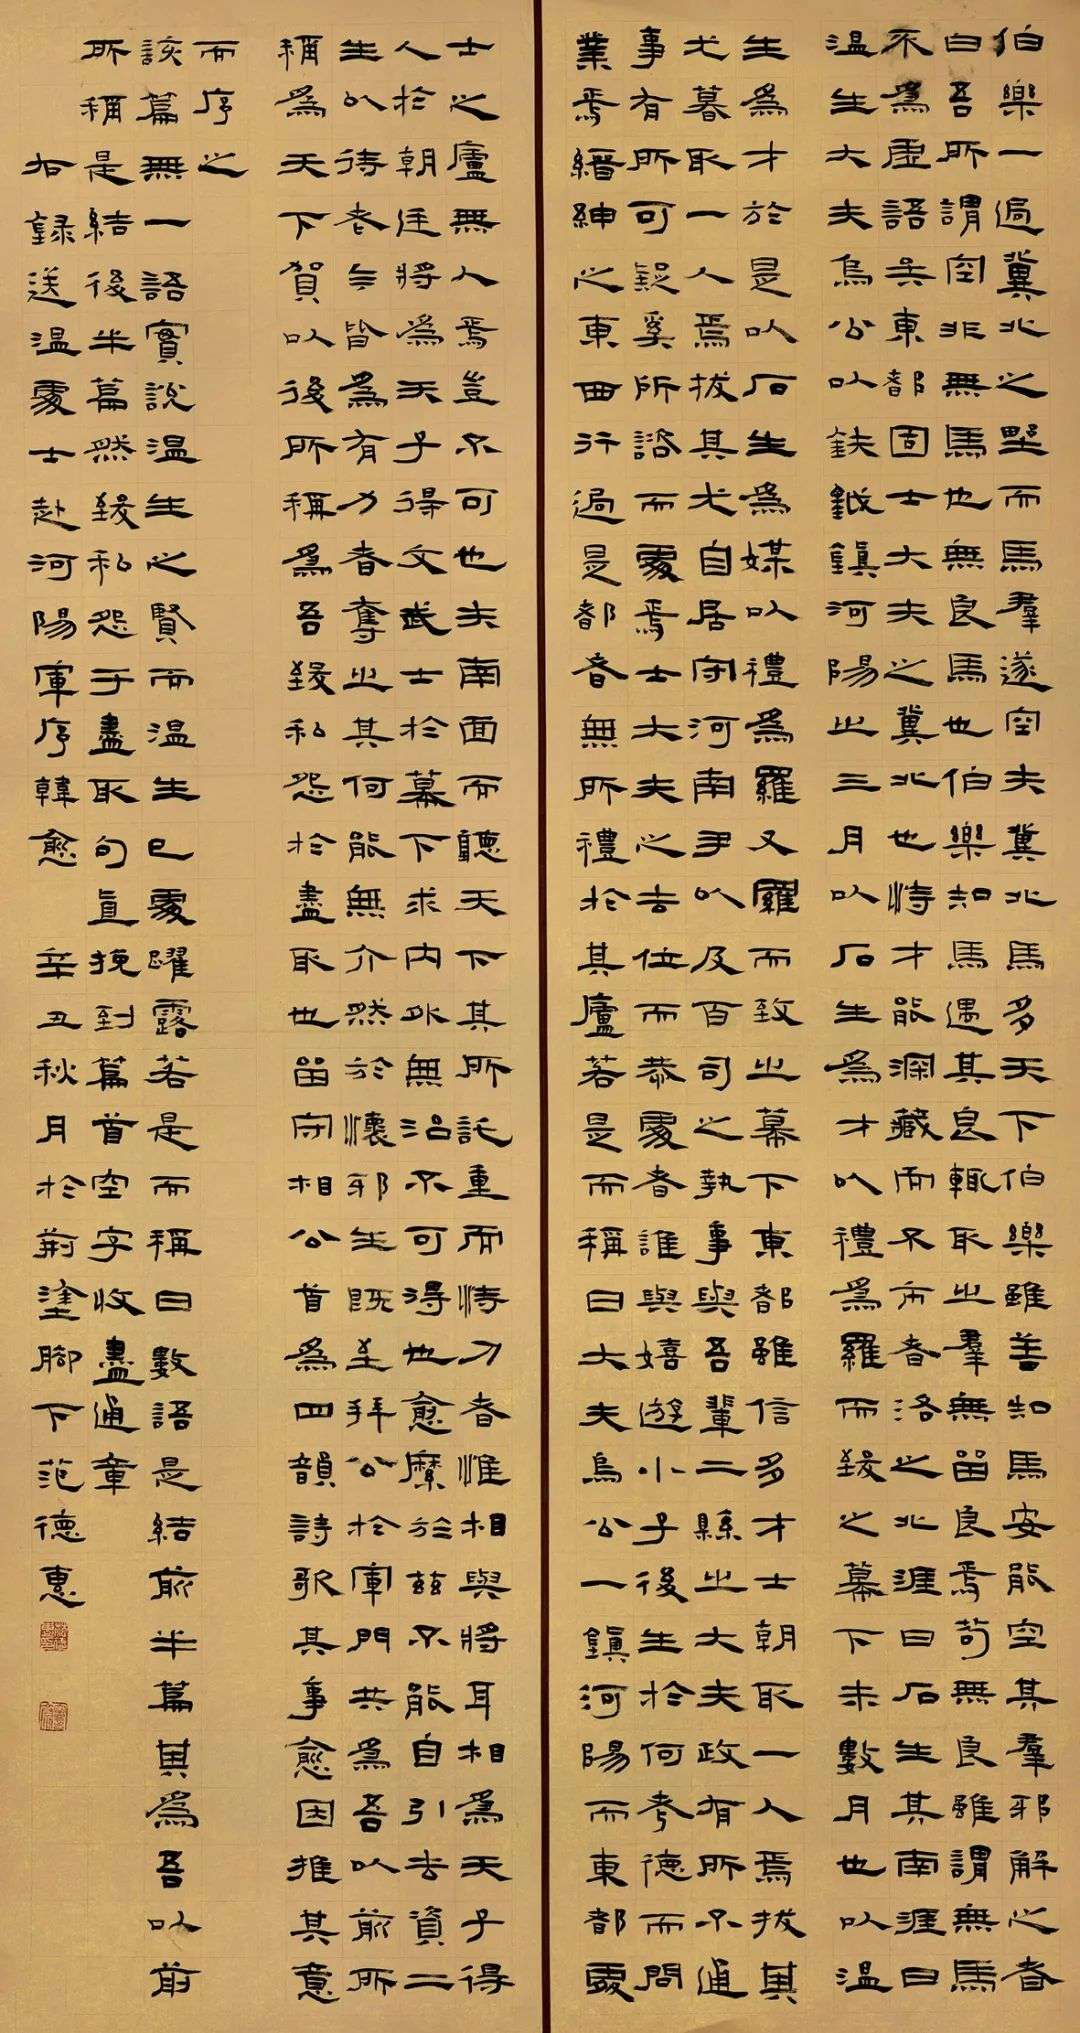 伯樂一過冀北之野而馬羣遂空夫冀北馬多天下伯樂雖善知馬安能空其羣邪解之者
曰吾所謂空非無馬也無良馬也伯樂知馬遇其良輒取之羣無留良焉苟無良雖謂無馬
不為虛語矣東都固士大夫之冀北也恃才能深藏而不市者洛之北涯曰石生其南涯曰
溫生大夫烏公以鈇鉞鎮河陽之三月以石生為才以禮為羅而致之幕下未數月也以溫
生為才於是以石生為媒以禮為羅又羅而致之幕下東都雖信多才士朝取一人焉拔其
尤暮取一人焉拔其尤自居守河南尹以及百司之執事與吾輩二縣之大夫政有所不通
事有所可疑奚所諮而處焉士大夫之去位而恭處者誰與嬉遊小子後生於何考德而問
業焉縉紳之東西行過是都者無所禮於其廬若是而稱曰大夫烏公一鎮河陽而東都處
士之廬無人焉豈不可也夫南面而聽天下其所託重而恃力者惟相與將耳相為天子得
人於朝廷將為天子得文武士於幕下求內外無治不可得也愈縻於茲不能自引去資二
生以待老今皆為有力者奪之其何能無介然於懷邪生既至拜公於軍門其為吾以前所
稱為天下賀以後所稱為吾致私怨於盡取也留守相公首為四韻詩歌其事愈因推其意
而序之
該篇無一語實說溫生之賢而溫生已處躍露若是而稱曰數語是結前半篇其為吾以前
所稱是結後半篇然致私怨于盡取句直挽到篇首空字收盡通章
右錄送溫處士赴河陽軍序韓愈 辛丑秋月於荊塗腳下范德惠